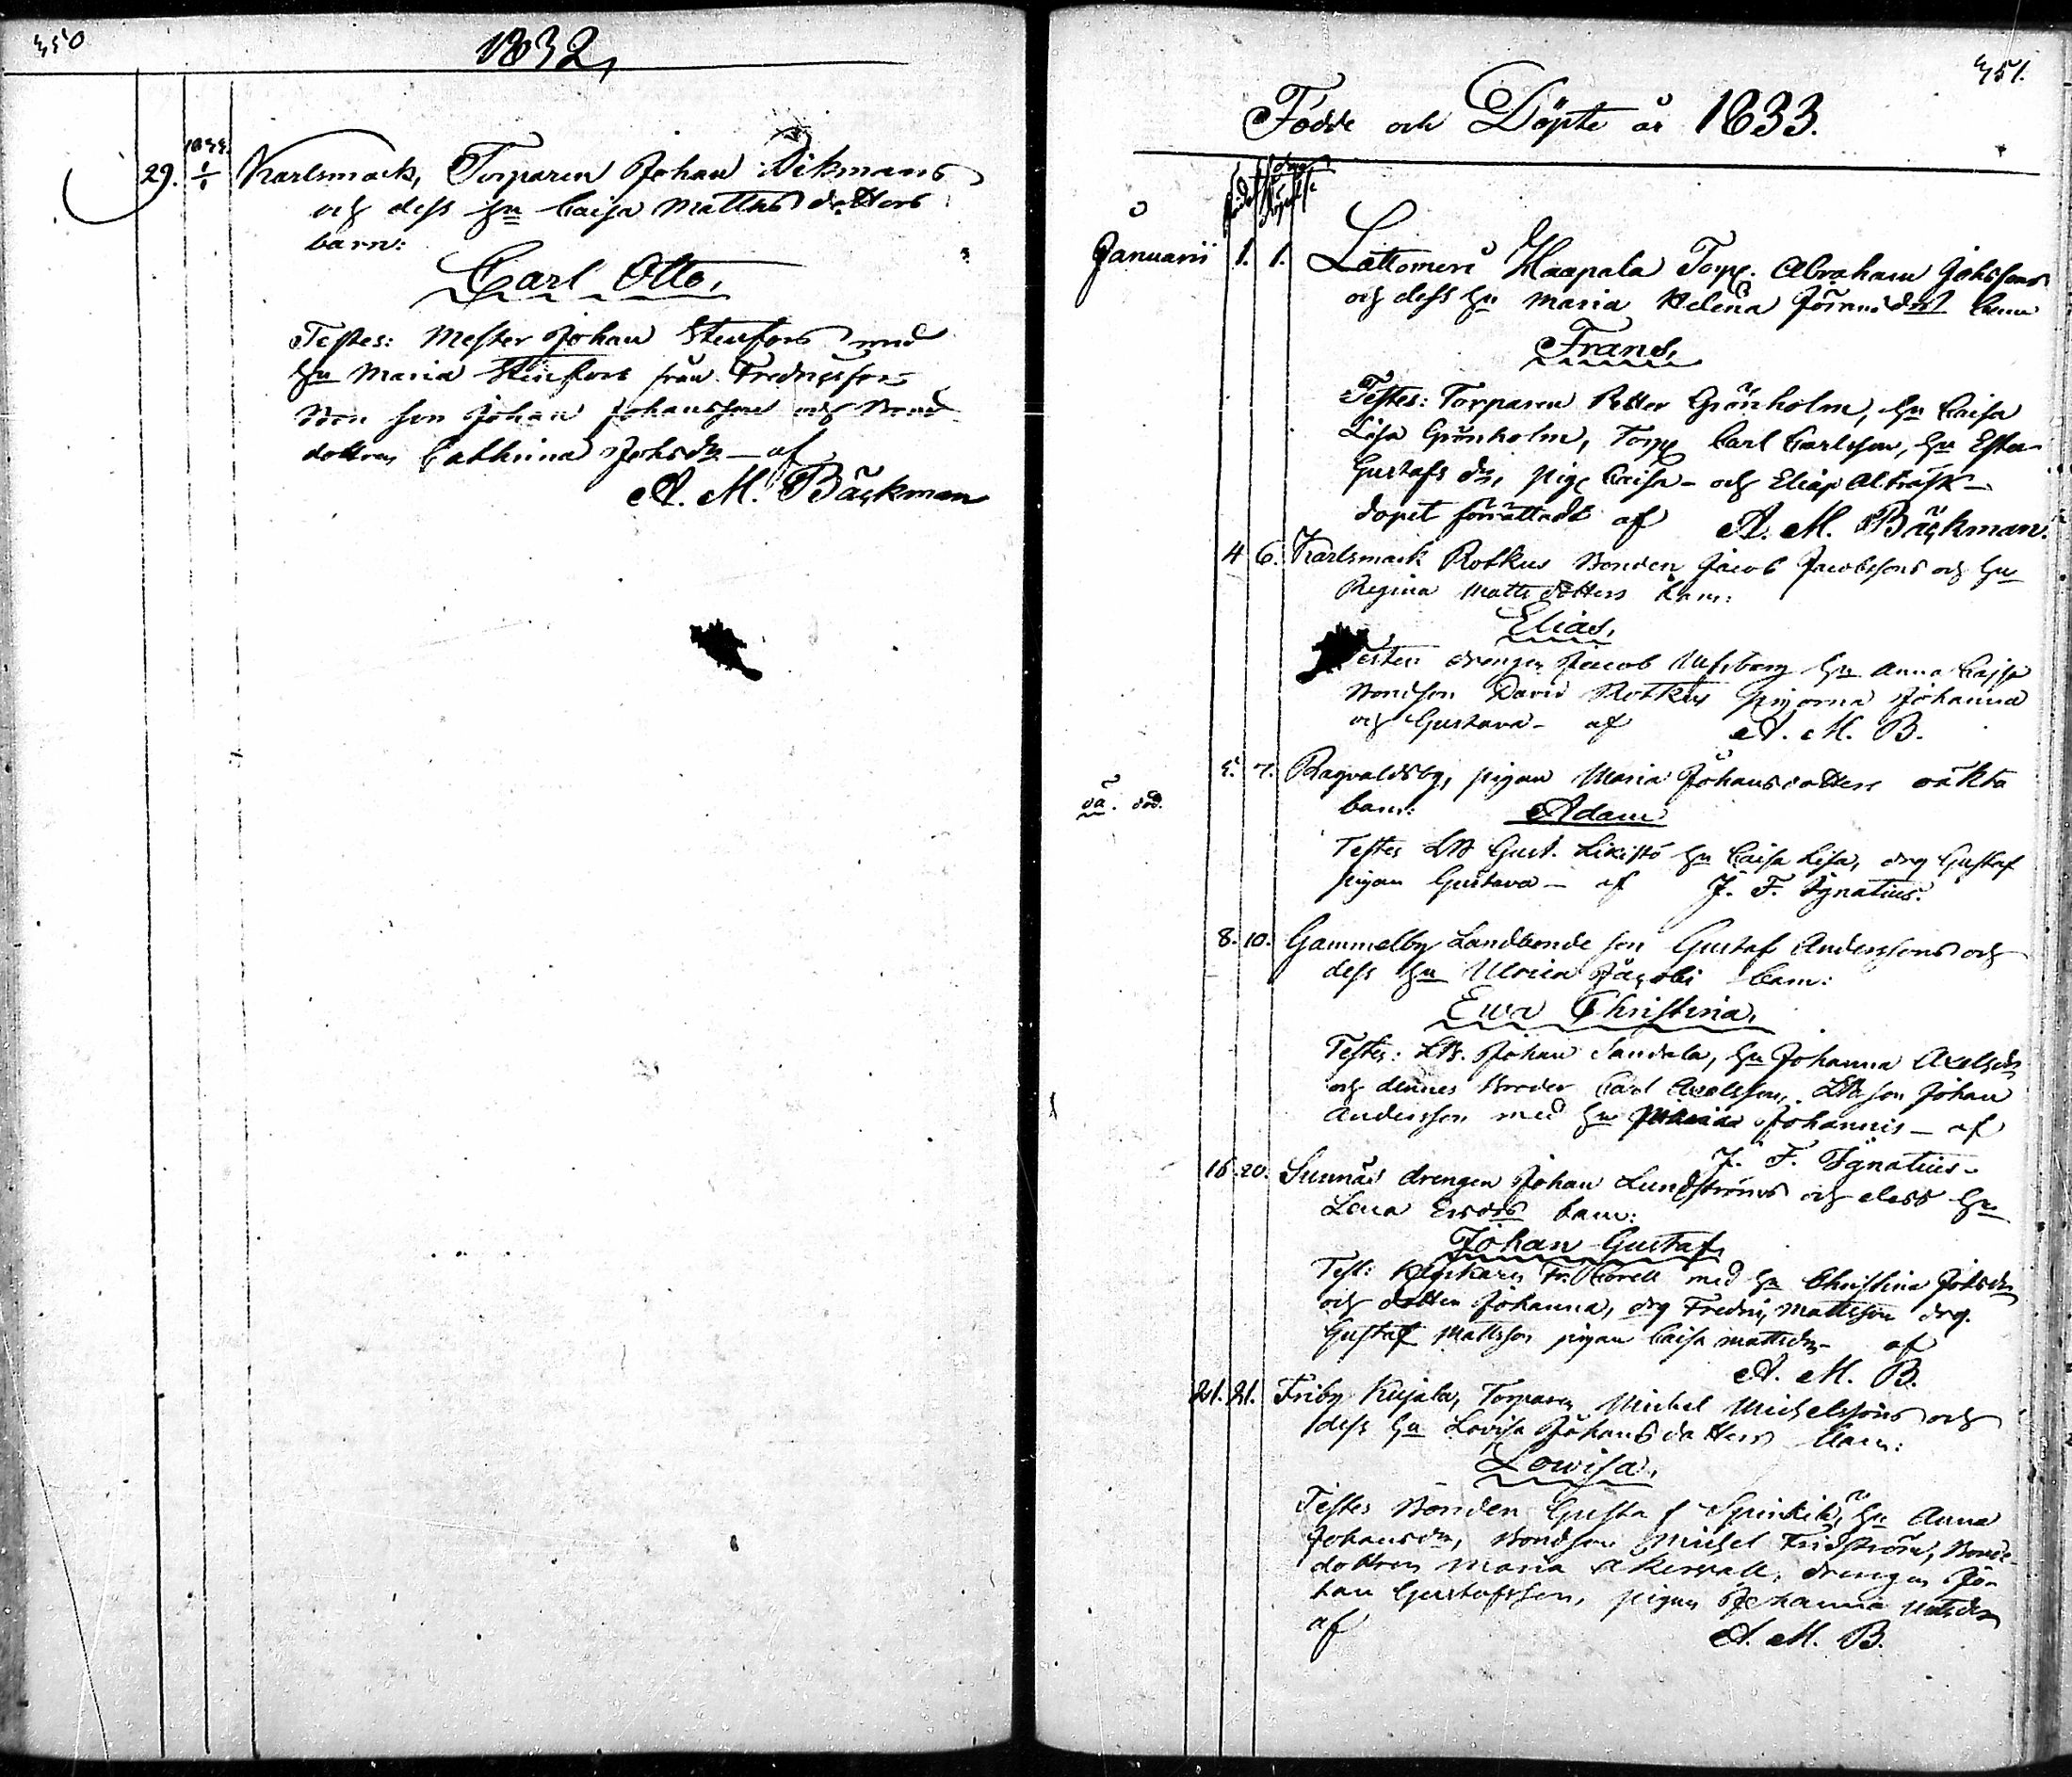 350
1832,
1833.
29. 1/1 Karlsmark, Torparen Johan Vikmans
och dess hu Caisa Matths dotters
barn:
Carl Otto,
Testes: Mester Johan Stenfors med
hu Maria Stenfors från Fredriksfors
Bon son Johan Johansson och Bond
dottren Cathrina Johsdr — af
A. M. Bäckman
351.
Födde och Döpte år 1833.
Januarii 1. 1. Lattomeri Haapala Torp. Abraham Johssons
och dess hu Maria Helena Jöransdot barn
Frans,
Testes: Torparen Petter Grönholm, hu Caisa
Lisa Grönholm, Torp Carl Carlsson, hu Ester
Gustafs dr, pig Caisa – och Elias Alträsk –
dopet förrättadt af A. M. Bäckman.
4 6. Karlsmark Rotkus Bonden Jacob Jacobssons och hu
Regina Matts dotters barn:
Elias,
Testes drengen Jacob hu Anna Caisa
Bondson David Rotkus pigorna Johanna
och Gustava – af A. M. B.
5. 7. Ragvaldsby, pigan Maria Johansdotters oäkta
barn: Adam
oä. död.
Testes LB Gust. Likistö hu Caisa Lisa, drg Gustaf
pigan Gustava – af J. F. Ignatius.
8. 10. Gammelby Landbonde son Gustaf Anderssons och
dess hu Ulrica Jacobi barn:
Ewa Christina,
Testes: LB. Johan Sandala, hu Johanna Axelsdr
och dennes Broder Carl Axelsson, LB son Johan
Andersson med hu Maria Johannis – af
J. F. Ignatius –
16 20. Sunnäs drengen Johan Lundströms och dess hu
Lena Ersdrs barn:
Johan Gustaf,
Test: Klockaren Fr. Corell med hu Christina Johsdr
och dotter Johanna, drg Fredric Mattsson drg.
Gustaf Mattsson pigan Caisa Mattsdr – af
A. M. B.
21. 21. Friby Kujala, Torparen Michel Michelssons och
dess hu Lovisa Johansdotters barn:
Lowisa,
Testes Bonden Gustaf Spinkilä, hu Anna
Johansdr, Bondson Michel Fridström, Bonde-
dottren Maria drengen Jo-
han Gustafsson, pigan Johanna Matsdr
af A. M. B.